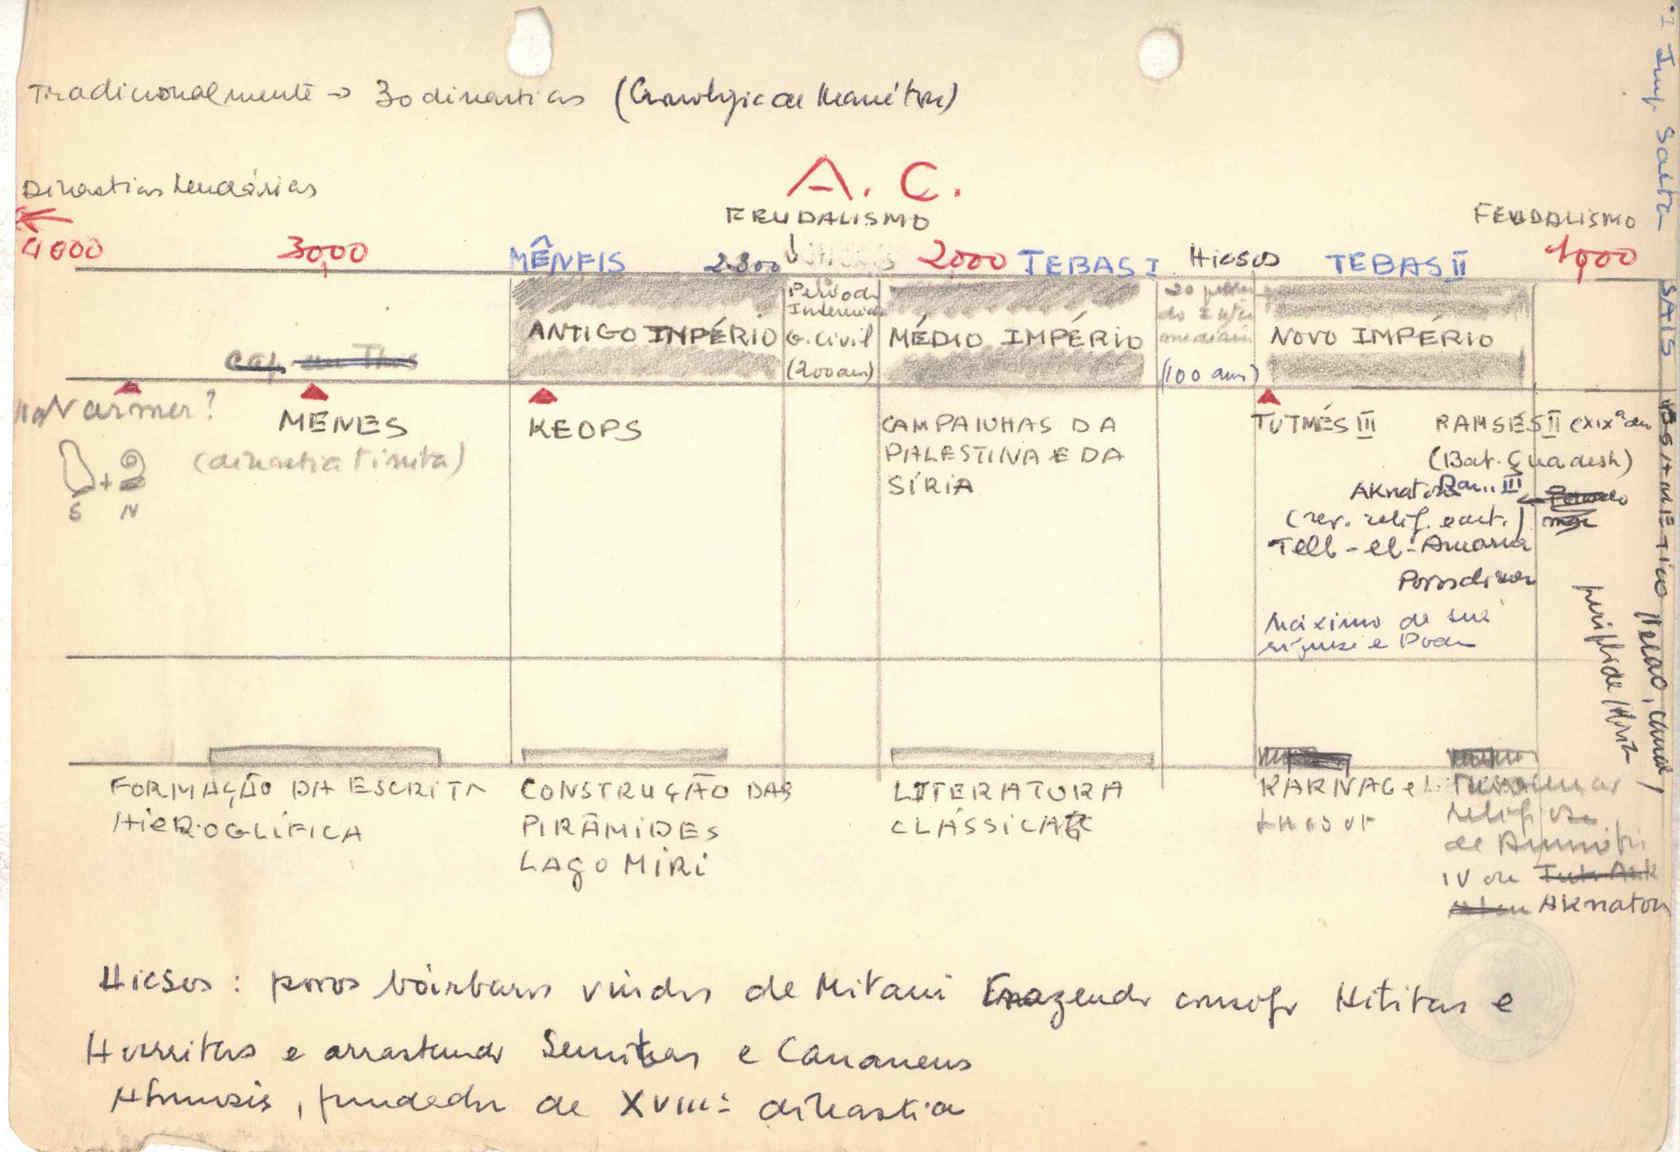 Tradicionalmente → 30 dinastias (Cronologia de Manéton)
Dinastias lendárias
A. C.
FEUDALISMO
FEUDALISMO
4000
3000
MÊNFIS
2300
2000
TEBAS I
Hicsos
TEBAS II
1000
ANTIGO INPÉRIO
Período
Intermed
G. Civil
(200 anos)
MÉDIO IMPÉRIO
(100 anos)
NOVO IMPÉRIO
cap. em This
Narmer?
MENES
(dinastia Tinita)
S + N
KEOPS
CAMPANHAS DA
PALESTINA E DA
SÍRIA
TUTMÉS III
RAMSÉS II (XIXª din
(Bat. Quadesh)
Aknaton
Ram. III
(rev. relig. e art.)
Tell-el-Amarna
Máximo de sua
riqueza e Poder
FORMAÇÃO DA ESCRITA
HIEROGLÍFICA
CONSTRUÇÃO DAS
PIRÂMIDES
LAGO MIRI
LITERATURA
CLÁSSICA
KARNAC e
LUCSOR
religiosa
de Amenófis
IV ou
Aknaton
SAIS
PSAMETICO
Necao, canal
Hicsos : povos bárbaros vindos de Mitani trazendo consigo Hititas e
Hurritas e arrastando Semitas e Cananeus
Ahmosis, fundador da XVIIIª dinastia